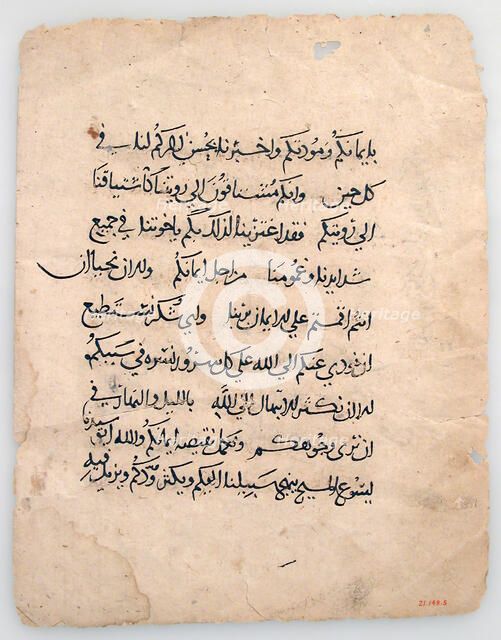 بايمانكم ومودتكم واخبرنا بحسن ذكركم لنا في
كل حين وانكم مشتاقون الي رويتنا كاشتياقنا
الي رويتكم فقد اعتزينا لذلك بكم ياخوتنا في جميع
شدايدنا وغمومنا من اجل ايمانكم نحيا ان
انتم اقمتم علي الايمان بربنا واي شكر نستطيع
ان نودي عنكم الي الله علي كل سرور نسره في سببكم
نكثر الابتهال الي الله بالليل والنهار في
ان نري وجوهكم ونكمل نقيصة ايمانكم والله
يسوع المسيح ينهج سبيلنا اليكم ويكثر ودكم ويزيد فيه
21.148.5
heritage